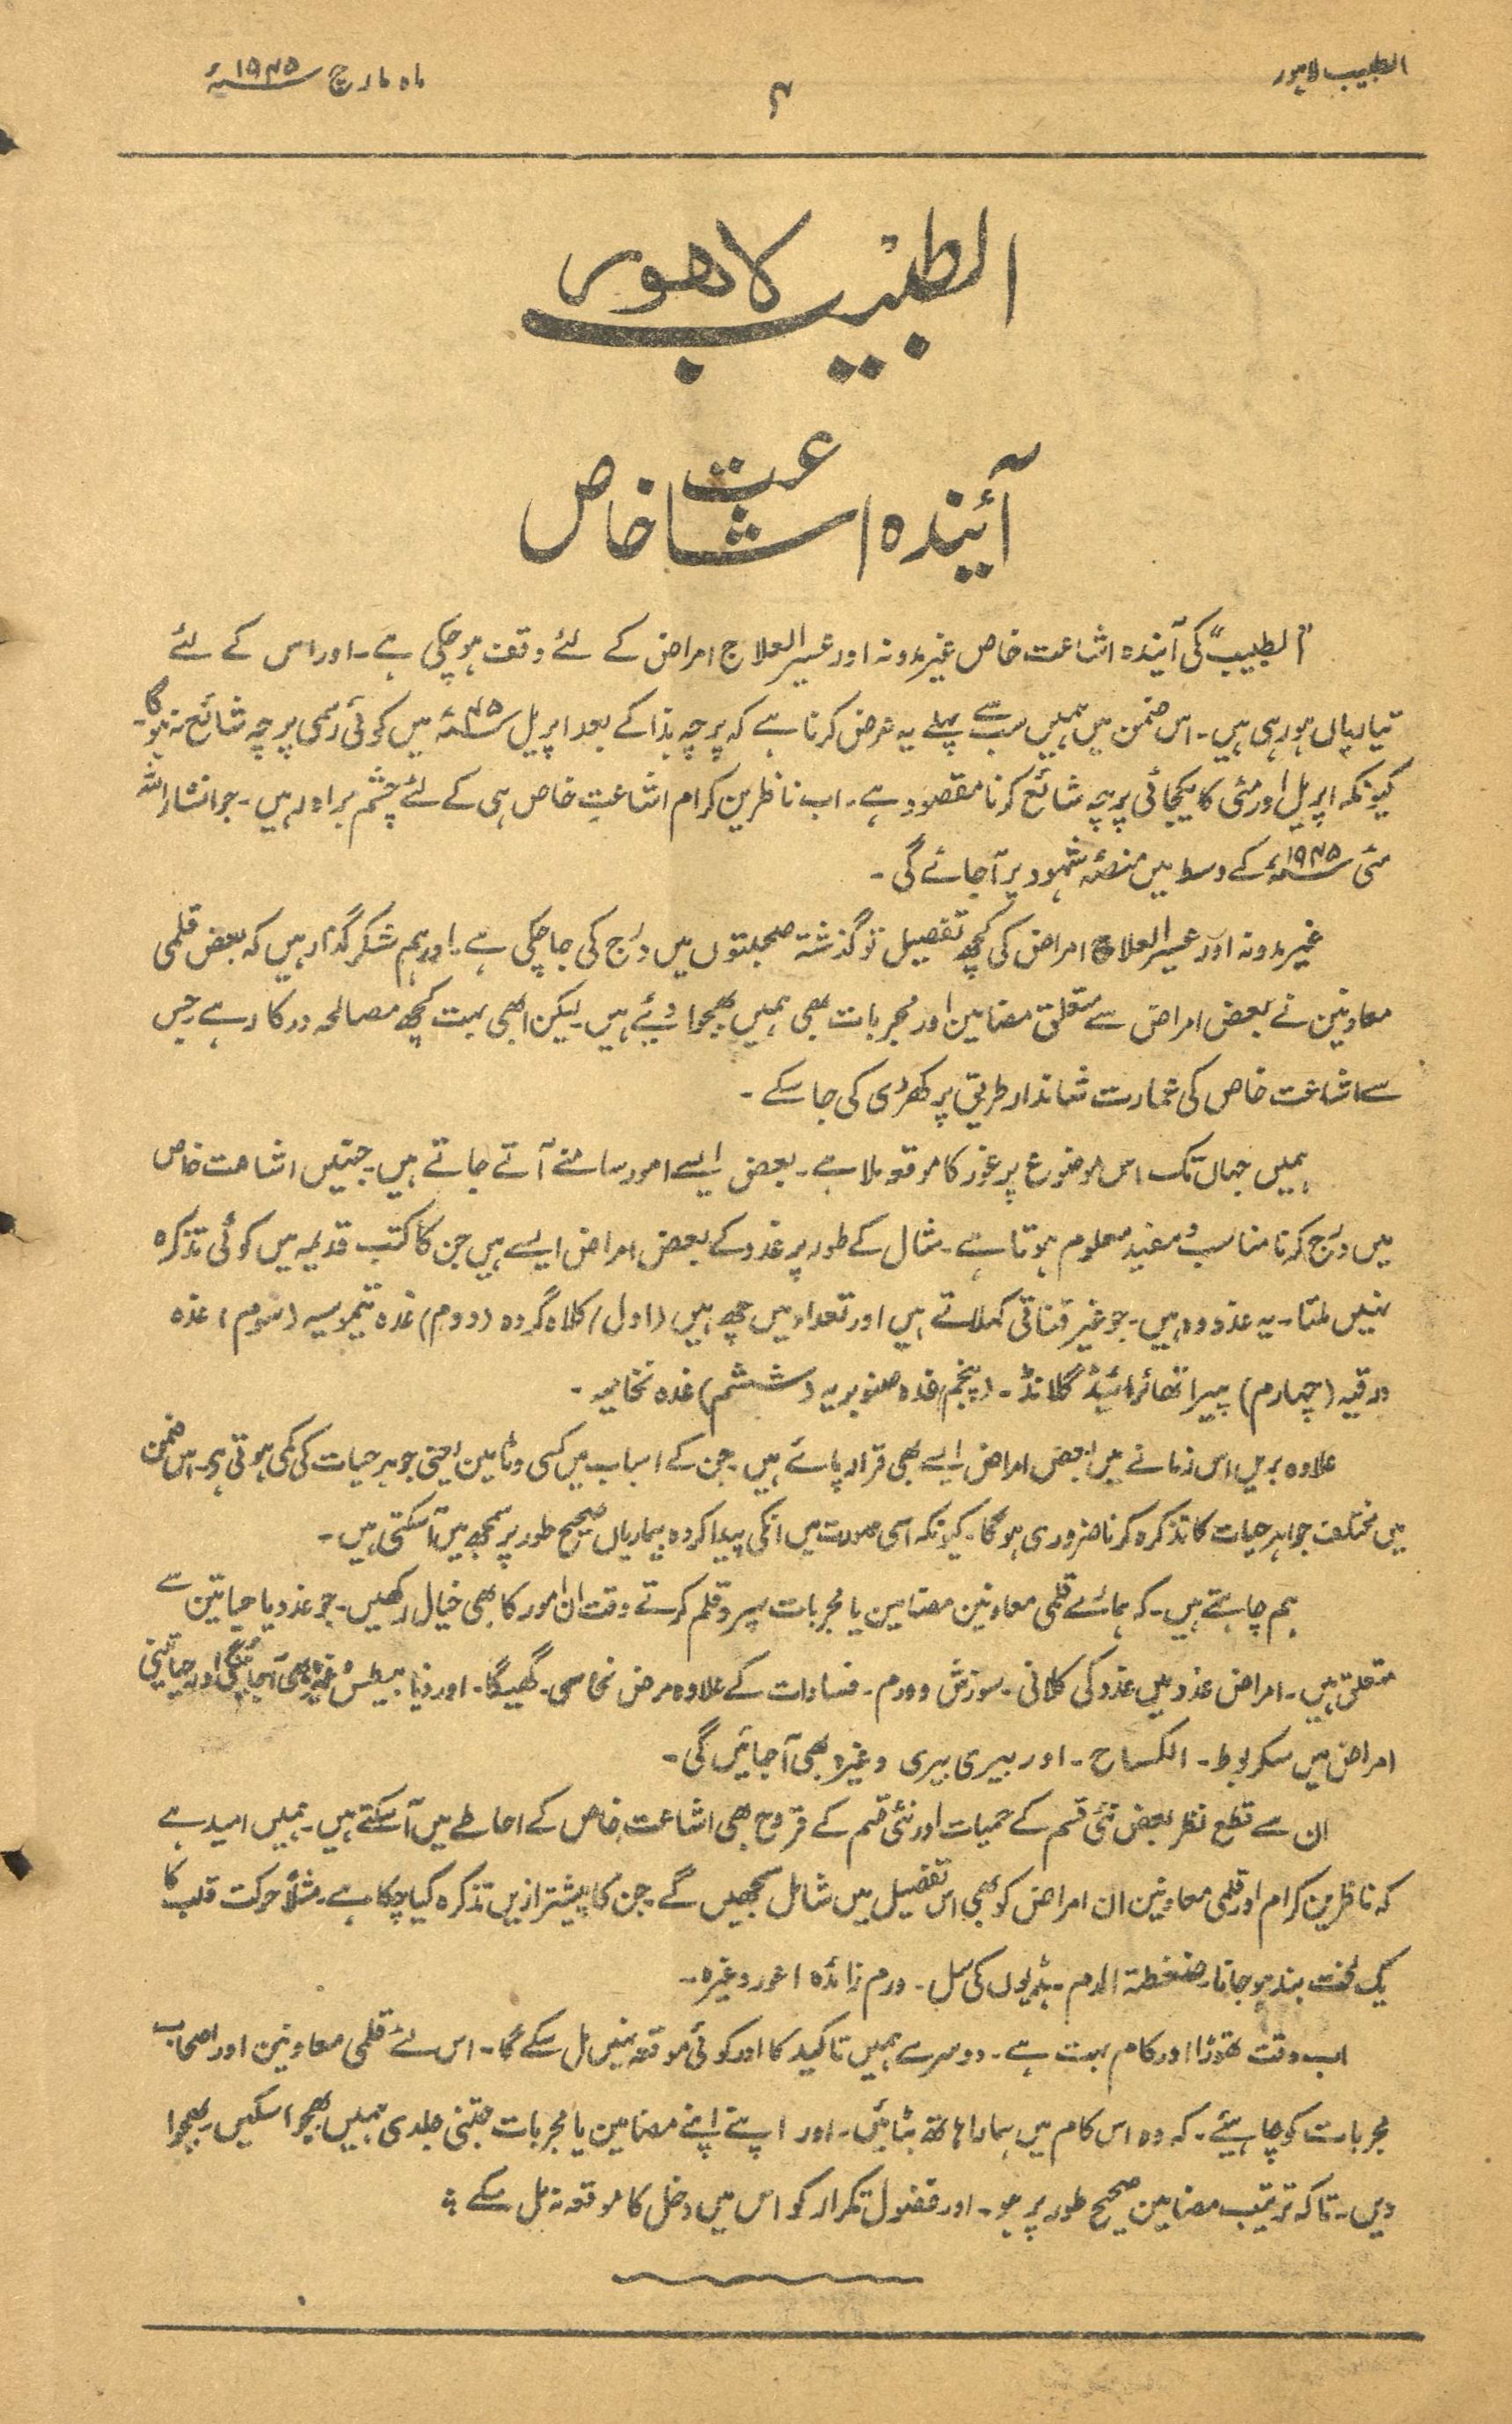 الطبیب لاہور
۴
ماہ مارچ ۱۹۴۵ء
الطبیب لاھور
آئیندہ اشاعت خاص
"الطبیب" کی آیندہ اشاعت خاص غیر مدونہ اور عسیر العلاج امراض کے لئے وقف ہو چکی ہے۔ اور اس کے لئے
تیاریاں ہو رہی ہیں۔ اس ضمن میں ہمیں سب سے پہلے یہ عرض کرنا ہے کہ پرچہ ہذا کے بعد اپریل ۴۵ء میں کوئی رسمی پرچہ شائع نہ ہو گا۔
کیونکہ اپریل اور مئی کا یکجائی پرچہ شائع کرنا مقصود ہے۔ اب ناظرین کرام اشاعتِ خاص ہی کے لئے چشم براہ رہیں۔ جو انشاء اللہ
مئی ۱۹۴۵ء کے وسط میں منصۂ شہود پر آ جائے گی۔
غیر مدونہ اور عسیر العلاج امراض کی کچھ تفصیل تو گذشتہ صحبتوں میں درج کی جا چکی ہے۔ اور ہم شکر گذار ہیں کہ بعض قلمی
معاونین نے بعض امراض سے متعلق مضامین اور مجربات بھی ہمیں بھجوا دیئے ہیں۔ لیکن ابھی بہت کچھ مصالحہ درکار ہے جس
سے اشاعت خاص کی عمارت شاندار طریق پر کھڑی کی جا سکے۔
ہمیں جہاں تک اس موضوع پر غور کا موقعہ ملا ہے۔ بعض ایسے امور سامنے آتے جاتے ہیں۔ جنہیں اشاعت خاص
میں درج کرنا مناسب و مفید معلوم ہوتا ہے۔ مثال کے طور پر غدد کے بعض امراض ایسے ہیں جن کا کتب قدیمہ میں کوئی تذکرہ
نہیں ملتا۔ یہ غدد وہ ہیں۔ جو غیر قناتی کہلاتے ہیں اور تعداد میں چھ ہیں (اول) کلاہ گردہ (دوم) غدہ تیموسیہ (سوم) غدہ
ورقیہ (چہارم) پیرا تھائرائیڈ گلانڈ۔ (پنجم) غدہ صنوبریہ (ششم) غدہ نخامیہ۔
علاوہ بریں اس زمانے میں بعض امراض ایسے بھی قرار پائے ہیں۔ جن کے اسباب میں کسی وٹامین یعنی جوہر حیات کی کمی ہوتی ہو۔ اس ضمن
میں مختلف جواہر حیات کا تذکرہ کرنا ضروری ہو گا۔ کیونکہ اسی صورت میں انکی پیدا کردہ بیماریاں صحیح طور پر سمجھ میں آ سکتی ہیں۔
ہم چاہتے ہیں۔ کہ ہمارے قلمی معاونین مضامین یا مجربات سپرد قلم کرتے وقت ان امور کا بھی خیال رکھیں۔ جو غدد یا حیاتین سے
متعلق ہیں۔ امراض غدد میں غدد کی کلانی۔ سوزش و ورم۔ فسادات کے علاوہ مرض نخاسی۔ گھیگا۔ اور ذیابیطس وغیرہ بھی آ جائینگی اور حیاتینی
امراض میں سکربوط۔ الکساح۔ اور بیری بیری وغیرہ بھی آ جائیں گی۔
ان سے قطع نظر بعض نئی قسم کے حمیات اور نئی قسم کے قروح بھی اشاعت خاص کے احاطے میں آ سکتے ہیں۔ ہمیں امید ہے
کہ ناظرین کرام اور قلمی معاونین ان امراض کو بھی اس تفصیل میں شامل سمجھیں گے۔ جن کا پیشتر ازیں تذکرہ کیا چکا ہے۔ مثلاً حرکت قلب کا
یک لخت بند ہو جانا۔ ضغطۃ الدم۔ ہڈیوں کی سل۔ ورم زائدہ اعور وغیرہ۔
اب وقت تھوڑا اور کام بہت ہے۔ دوسرے ہمیں تاکید کا اور کوئی موقعہ نہیں مل سکے گا۔ اس لئے قلمی معاونین اور اصحاب
مجربات کو چاہیئے۔ کہ وہ اس کام میں ہمارا ہاتھ بٹائیں۔ اور اپنے اپنے مضامین یا مجربات جتنی جلدی ہمیں بھجوا سکیں۔ بھجوا
دیں۔ تاکہ ترتیب مضامین صحیح طور پر ہو۔ اور فضول تکرار کو اس میں دخل کا موقعہ نہ مل سکے ؛